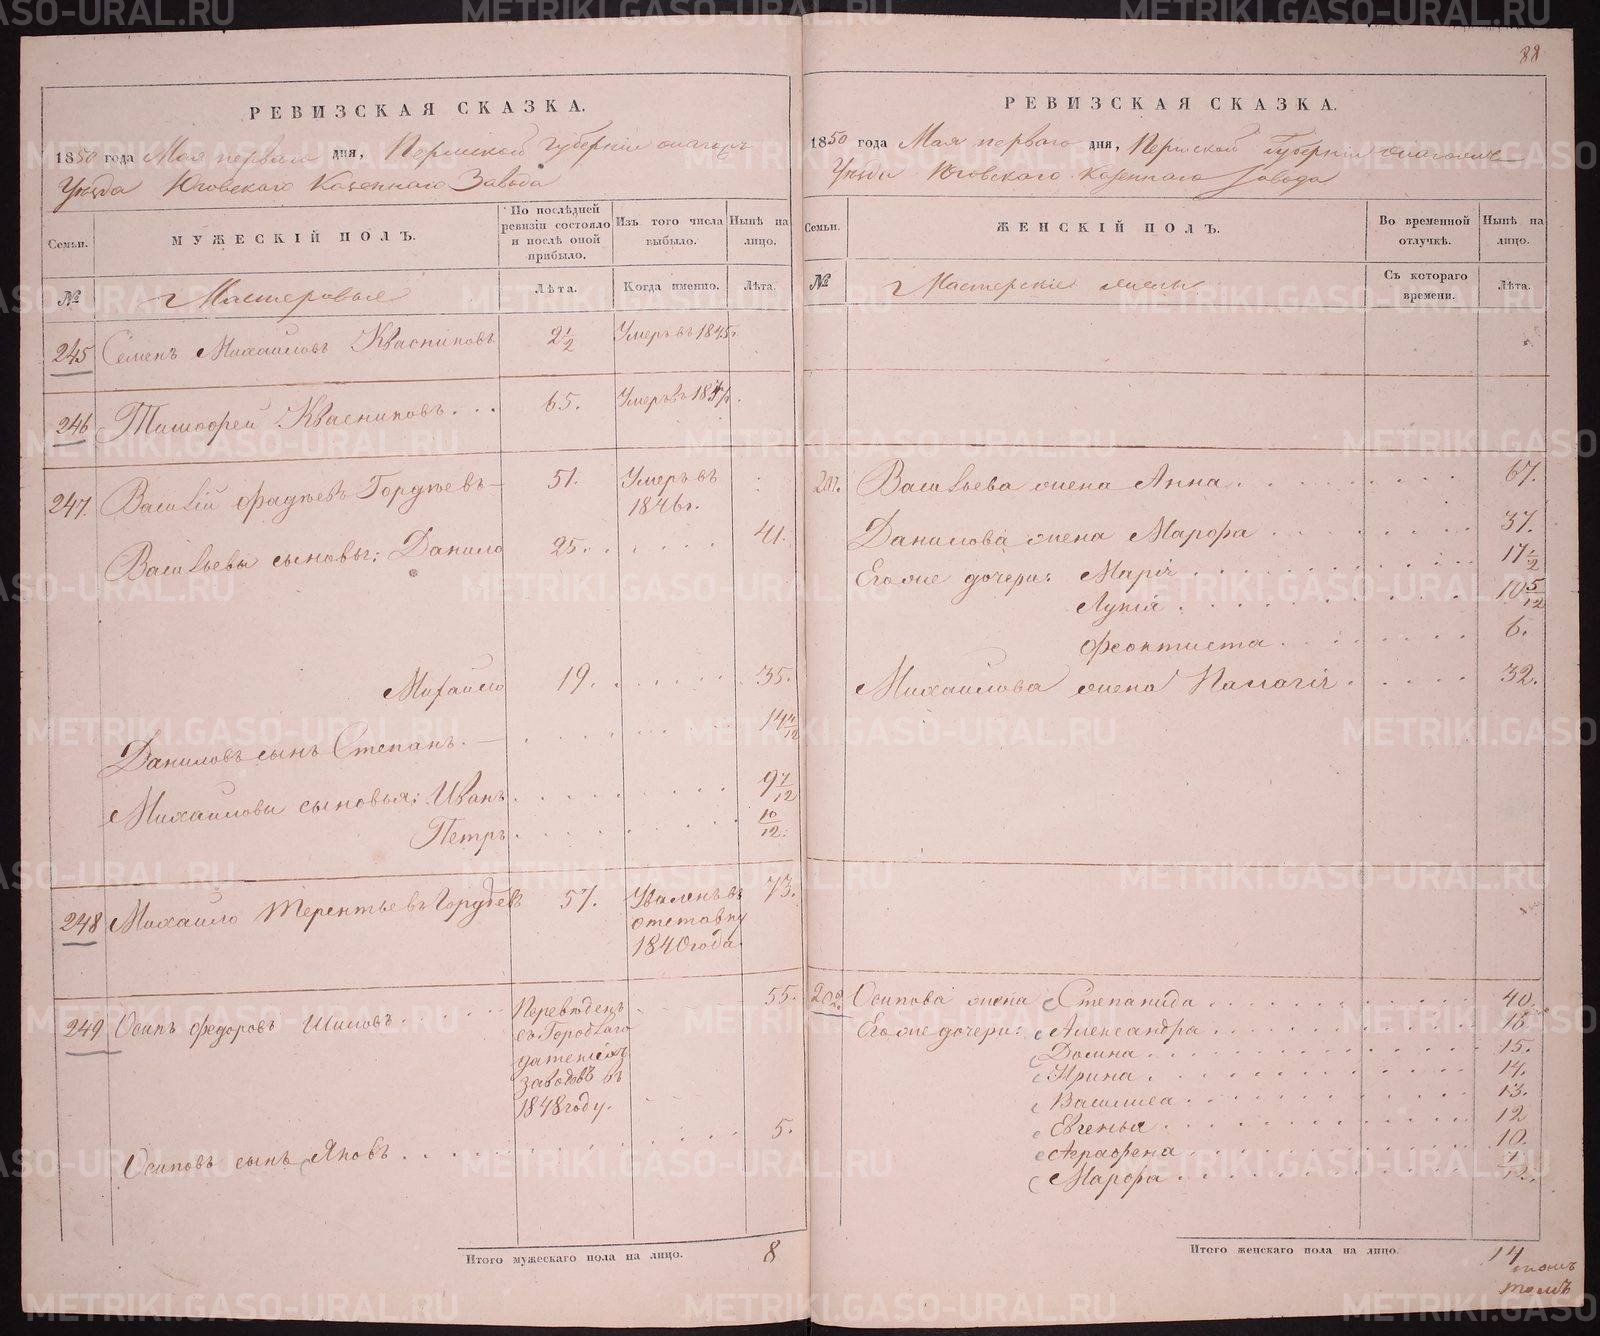 88
РЕВИЗСКАЯ СКАЗКА.
1850 года Мая перваго дня, Пермской Губернии
Уѣзда Юговскаго Казеннаго Завода
Семьи.
МУЖЕСКІЙ ПОЛЪ.
По послѣдней ревизіи состояло и послѣ оной прибыло.
Изъ того числа выбыло.
Нынѣ на лицо.
№
Мастеровые
Лѣта.
Когда именно.
Лѣта.
245 Семенъ Михаиловъ Квасниковъ 2 1/2 Умеръ въ 1845.
246 Тимофей Квасниковъ... 65. Умеръ въ
247. Василий Фадѣевъ Гордѣевъ 51. Умеръ въ
1846г.
Васильевы сыновья: Данило 25. 41.
Михайло 19. 35.
Даниловъ сынъ Степанъ. 14 4/12
Михаиловы сыновья: Иванъ 9 7/12
Петръ 10/12.
248 Михайло Терентьевъ Гордѣевъ 57. Уволенъ въ 73.
отставку
1840 года
249 Осипъ Федоровъ Шиловъ Переведенъ 55.
съ Гороблаго
датскихъ
заводовъ въ
1848 году.
Осиповъ сынъ Яковъ 5.
Итого мужескаго пола на лицо. 8
РЕВИЗСКАЯ СКАЗКА.
1850 года Мая перваго дня, Пермской Губернии
Уѣзда Юговскаго Казеннаго Завода
Семьи.
ЖЕНСКІЙ ПОЛЪ.
Во временной отлучкѣ.
Нынѣ на лицо.
№
Мастерскія жены
Съ котораго времени.
Лѣта.
207. Васильева жена Анна 67.
Данилова жена Марфа 37.
Его же дочери: Марія 17 1/2
Лукія 10 5/12
Феоктиста 6.
Михаилова жена Палагія 32.
208 Осипова жена Степанида 40.
Его же дочери: Александра 16
Домна 15.
Ирина 14.
Василиса 13.
Евгенья 12
Аграфена 10.
Марфа
Итого женскаго пола на лицо. 14
METRIKI.GASO-URAL.RU